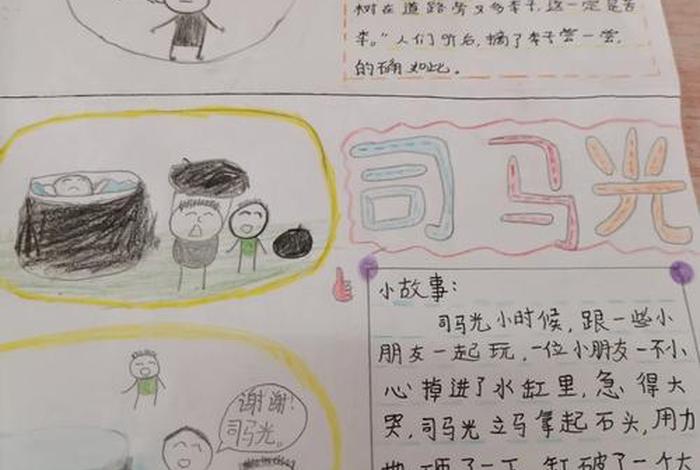 树在道路旁又多李子,这一定是苦
李。"人们听后,摘了李子尝一尝,
的确如此。
司马光
小故事:
司马光小时候,跟一些小
朋友一起玩,一位小朋友一不小
心掉进了水缸里,急得大
哭,司马光立马拿起石头,用力
地砸了一下,缸破了一个大
谢谢!
司马光。